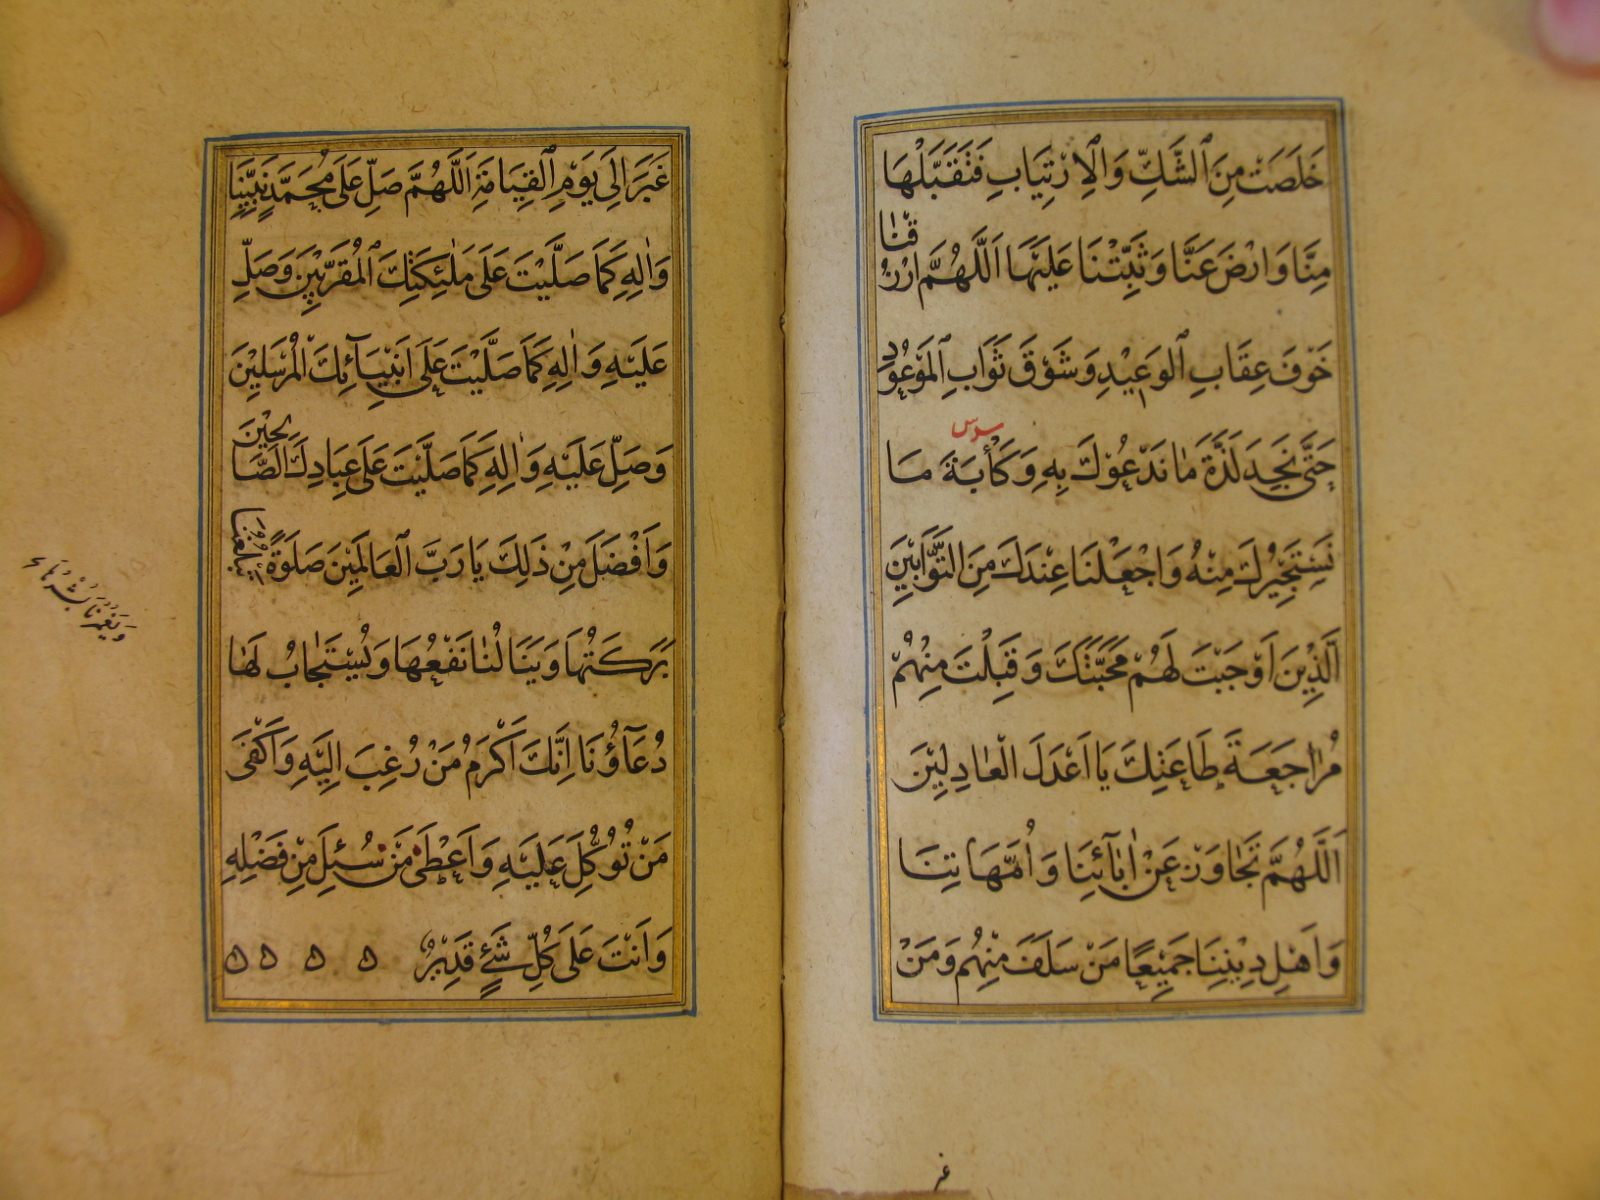 خَلَصَتْ مِنَ ٱلشَّكِّ وَٱلاِرْتِيَابِ فَتَقَبَّلْهَا
مِنَّا وَارْضَ عَنَّا وَثَبِّتْنَا عَلَيْهَا اَللَّهُمَّ ارْزُقْنَا
خَوْفَ عِقَابِ ٱلوَعِيْدِ وَشَوْقَ ثَوَابِ ٱلمَوْعُوْدِ
حَتَّى نَجِدَ لَذَّةَ مَا نَدْعُوْكَ بِهِ وَكَأْبَةَ مَا
نَسْتَجِيْرُكَ مِنْهُ وَاجْعَلْنَا عِنْدَكَ مِنَ التَّوَّابِيْنَ
اَلَّذِيْنَ اَوْجَبْتَ لَهُمْ مَحَبَّتَكَ وَقَبِلْتَ مِنْهُمْ
مُرَاجَعَةَ طَاعَتِكَ يَا اَعْدَلَ الْعَادِلِيْنَ
اَللَّهُمَّ تَجَاوَزْ عَنْ اٰبَآئِنَا وَاُمَّهَاتِنَا
وَاَهْلِ دِيْنِنَا جَمِيْعًا مَنْ سَلَفَ مِنْهُمْ وَمَنْ
غبر
غَبَرَ اِلَى يَوْمِ ٱلقِيَامَةِ اَللَّهُمَّ صَلِّ عَلَى مُحَمَّدٍ نَبِيِّنَا
وَاٰلِهِ كَمَا صَلَّيْتَ عَلَى مَلٰئِكَتِكَ ٱلمُقَرَّبِيْنَ وَصَلِّ
عَلَيْهِ وَاٰلِهِ كَمَا صَلَّيْتَ عَلَى اَنْبِيَآئِكَ الْمُرْسَلِيْنَ
وَصَلِّ عَلَيْهِ وَاٰلِهِ كَمَا صَلَّيْتَ عَلَى عِبَادِكَ الصَّالِحِيْنَ
وَاَفْضَلَ مِنْ ذَلِكَ يَا رَبَّ ٱلعَالَمِيْنَ صَلَوةً تَبْلُغُنَا
بَرَكَتُهَا وَيَنَالُنَا نَفْعُهَا وَيُسْتَجَابُ لَهَا
دُعَآؤُنَا اِنَّكَ اَكْرَمُ مَنْ رُغِبَ اِلَيْهِ وَاَكْفَى
مَنْ تُوُكِّلَ عَلَيْهِ وَاَعْطَى مَنْ سُئِلَ مِنْ فَضْلِهِ
وَاَنْتَ عَلَى كُلِّ شَيْءٍ قَدِيْرٌ ۵ ۵ ۵ ۵